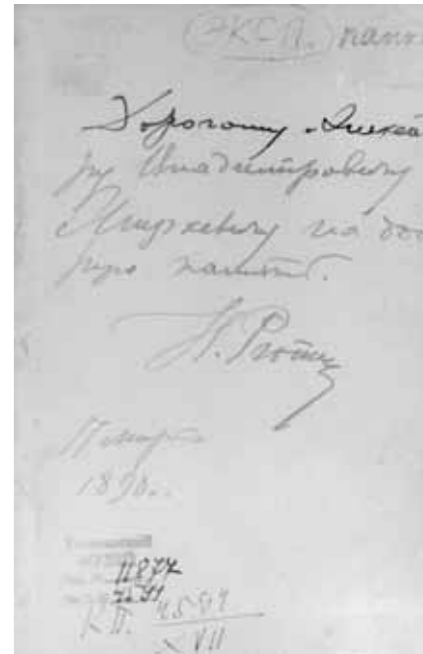 (ЭКСП.)
Дорогому Алекса
дру Владимировичу
Жиркевичу на доб
рую память.
17 марта
1890 г.
11877
КП. 4584
VII